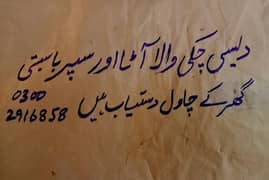 دیسی چکی والا آٹا اور سپر باسمتی
گھر کے چاول دستیاب ہیں
0300
2916858